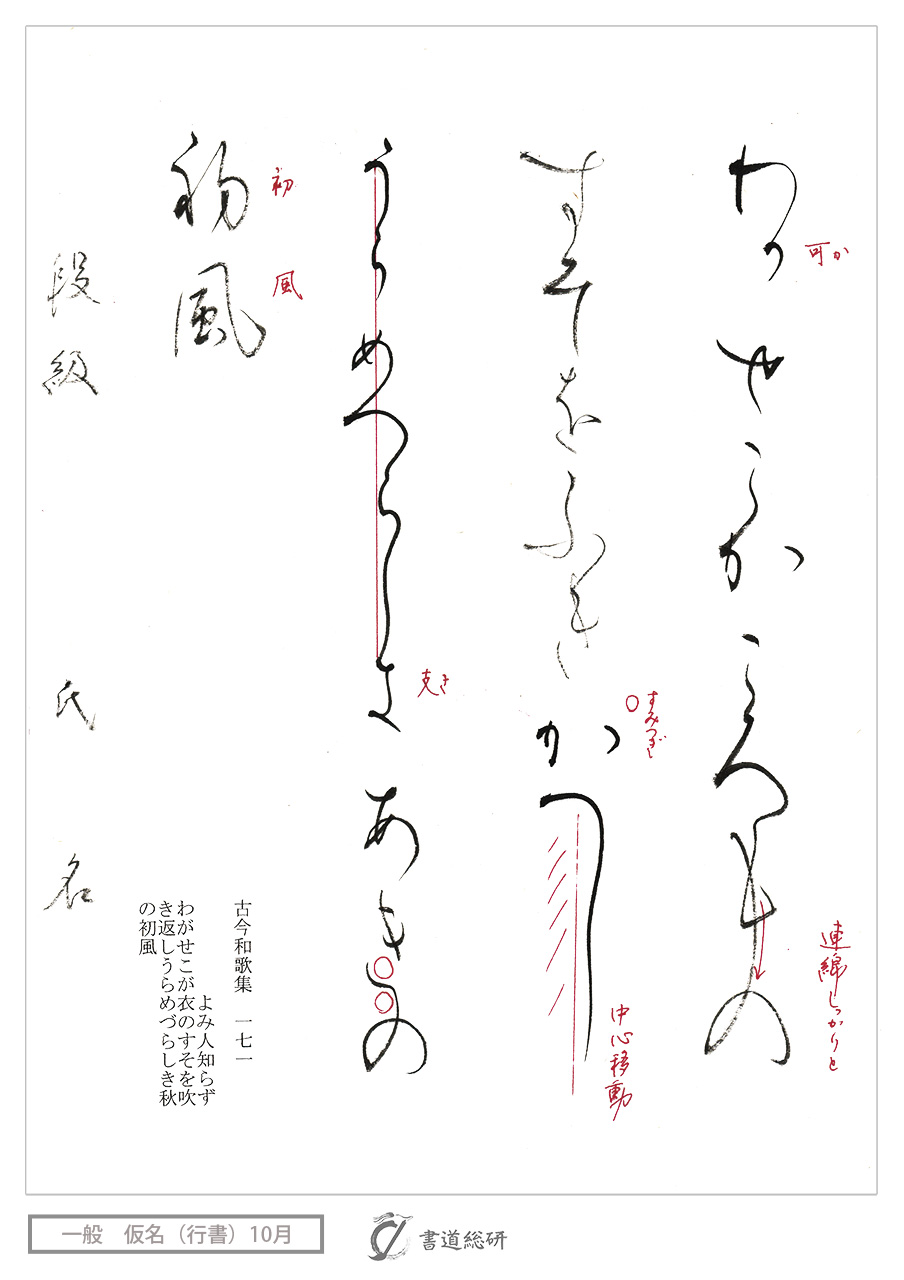 わかせこかころもの
可か
連綿しっかりと
すそをふきかへし
すみつぎ
中心移動
うらめつらしきあきの
克き
初風
初 風
段級 氏名
古今和歌集 一七一
よみ人知らず
わがせこが衣のすそを吹
き返しうらめづらしき秋
の初風
一般 仮名（行書）10月
書道総研